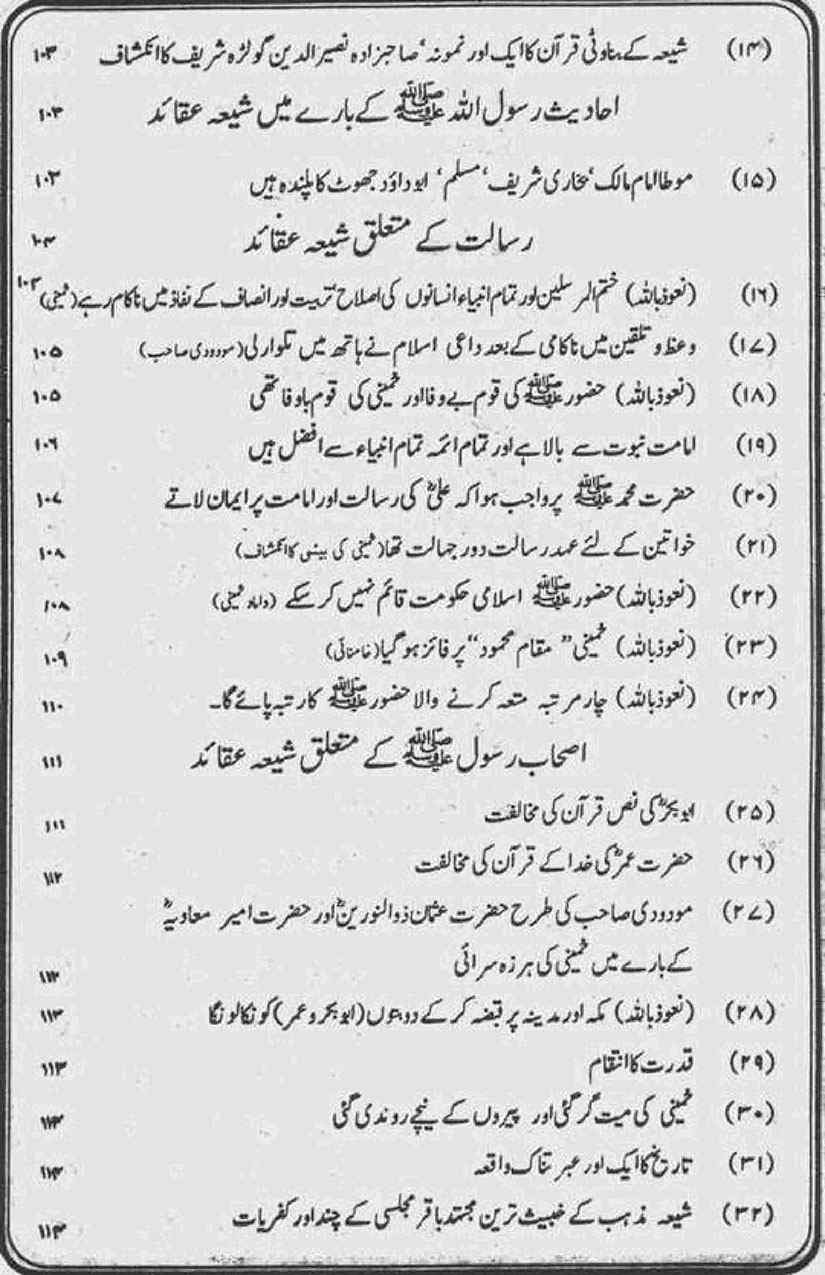 (۱۴) شیعہ کے بناوٹی قرآن کا ایک اور نمونہ‘ صاحبزادہ نصیر الدین گولڑہ شریف کا انکشاف ۱۰۳
احادیث رسول اللہ ﷺ کے بارے میں شیعہ عقائد ۱۰۳
(۱۵) موطا امام مالک‘ بخاری شریف‘ مسلم‘ ابوداؤد جھوٹ کا پلندہ ہیں ۱۰۳
رسالت کے متعلق شیعہ عقائد ۱۰۴
(۱۶) (نعوذ باللہ) ختم المرسلین اور تمام انبیاء انسانوں کی اصلاح‘ تربیت اور انصاف کے نفاذ میں ناکام رہے (خمینی) ۱۰۴
(۱۷) وعظ و تلقین میں ناکامی کے بعد داعی اسلام نے ہاتھ میں تلوار لی (مودودی صاحب) ۱۰۵
(۱۸) (نعوذ باللہ) حضور ﷺ کی قوم بے وفا اور خمینی کی قوم باوفا تھی ۱۰۵
(۱۹) امامت نبوت سے بالا ہے اور تمام ائمہ تمام انبیاء سے افضل ہیں ۱۰۶
(۲۰) حضرت محمد ﷺ پر واجب ہوا کہ علیؓ کی رسالت اور امامت پر ایمان لاتے ۱۰۷
(۲۱) خواتین کے لئے عہد رسالت دور جہالت تھا (خمینی کی بیٹی کا انکشاف) ۱۰۸
(۲۲) (نعوذ باللہ) حضور ﷺ اسلامی حکومت قائم نہیں کر سکے (داماد خمینی) ۱۰۸
(۲۳) (نعوذ باللہ) خمینی ”مقام محمود“ پر فائز ہو گیا (خامنائی) ۱۰۹
(۲۴) (نعوذ باللہ) چار مرتبہ متعہ کرنے والا حضور ﷺ کا رتبہ پائے گا۔ ۱۱۰
اصحاب رسول ﷺ کے متعلق شیعہ عقائد ۱۱۱
(۲۵) ابوبکرؓ کی نص قرآن کی مخالفت ۱۱۱
(۲۶) حضرت عمرؓ کی خدا کے قرآن کی مخالفت ۱۱۲
(۲۷) مودودی صاحب کی طرح حضرت عثمان ذوالنورینؓ اور حضرت امیر معاویہؓ
کے بارے میں خمینی کی ہرزہ سرائی ۱۱۲
(۲۸) (نعوذ باللہ) مکہ اور مدینہ پر قبضہ کر کے دو بتوں (ابوبکر و عمر) کو نکالونگا ۱۱۳
(۲۹) قدرت کا انتقام ۱۱۳
(۳۰) خمینی کی میت گر گئی اور پیروں کے نیچے روندی گئی ۱۱۳
(۳۱) تاریخ کا ایک اور عبرتناک واقعہ ۱۱۴
(۳۲) شیعہ مذہب کے خبیث ترین مجتہد باقر مجلسی کے چند اور کفریات ۱۱۴